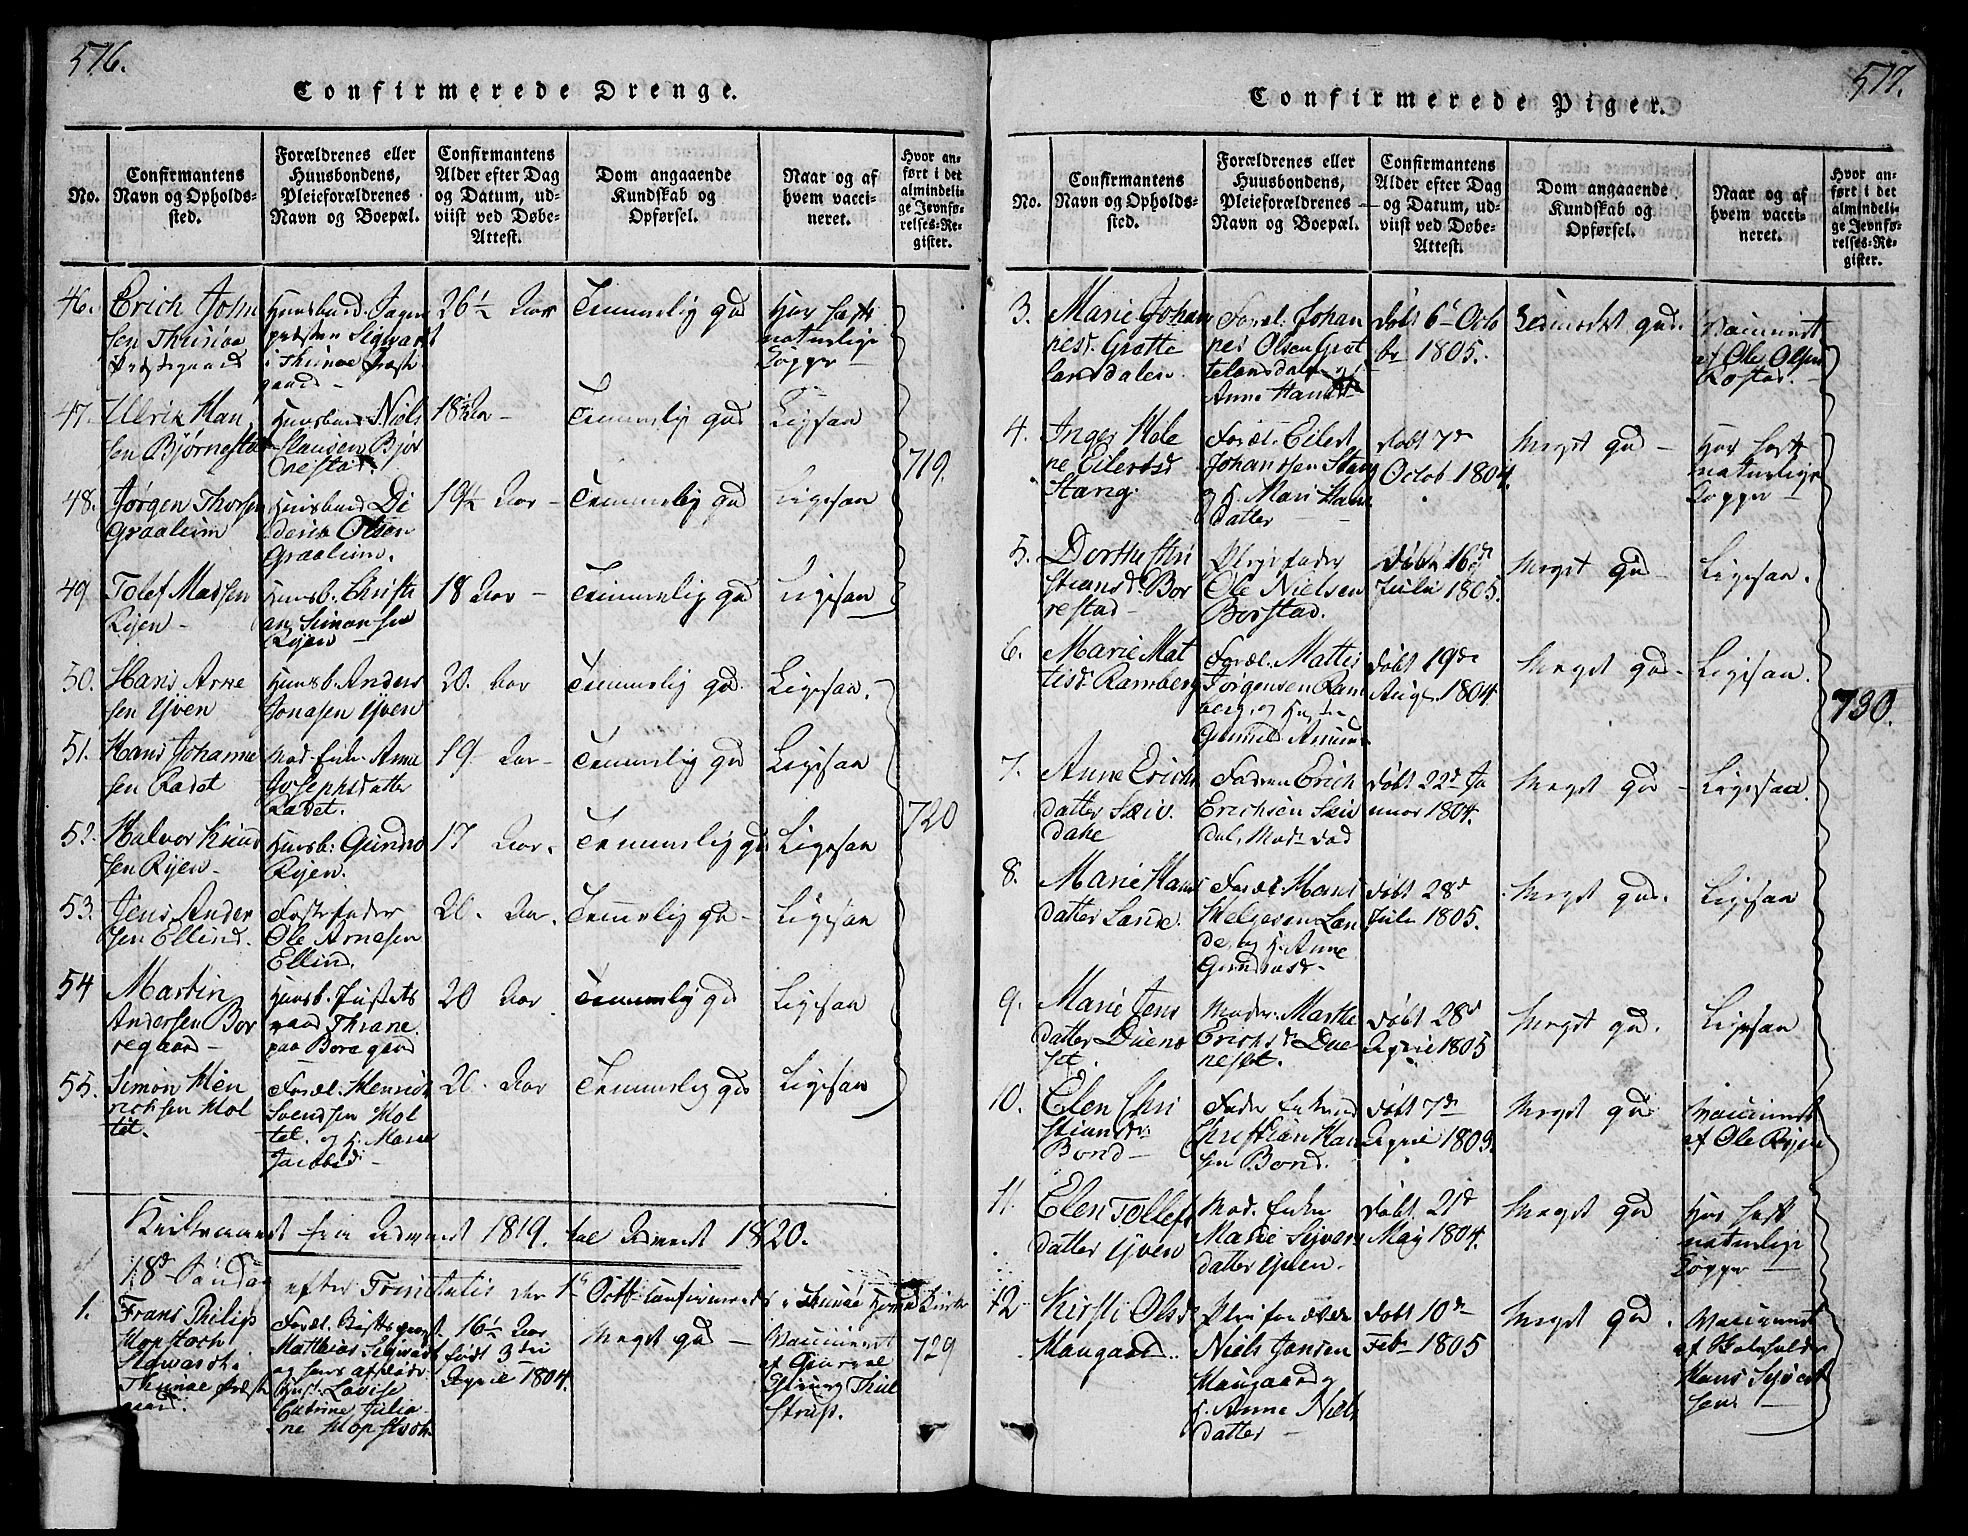 576.
Confirmerede Drenge.
No.
Confirmantens
Navn og Opholds-
sted.
Forældrenes eller
Huusbondens,
Pleieforældrenes
Navn og Boepæl.
Confirmantens
Alder efter Dag
og Datum, ud-
viist ved Døbe-
Attest.
Dom angaaende
Kundskab og
Opførsel.
Naar og af
hvem vacci-
neret.
Hvor an-
ført i det
almindeli-
ge Jevnfø-
relses-Re-
gister.
46.
Erich John
sen Thunøe
Præstegaard
Huusbond. Jagen
præsten Sigwardt
i Thunøe Præste
gaard
26½ Aar
Temmelig god
Har havt
naturlige
Kopper
47.
Ulrik Han
sen Bjørnestad
Huusbond Niels
Clausen Bjør
nestad.
18½ Aar
Temmelig god
Ligesaa
48.
Jørgen Thorsen
Graalum
Huusbond Di
derik Olsen
Graalum.
19½ Aar
Temmelig god
Ligesaa
719.
49
Tolef Madsen
Rÿen
Huusb. Christi
an Simonsen
Rÿen
18 Aar
Temmelig god
Ligesaa
50.
Hans Arne
sen Yven
Huusb. Anders
Jonasen Yven
20. Aar
Temmelig god.
Ligesaa.
51.
Hans Johanne
sen Radet
Mod. Enke Anne
Josephsdatter
Radet.
19. Aar
Temmelig god
Ligesaa
52.
Halvor Knud
sen Rÿen
Huusb: Gundro
Rÿen.
17 Aar.
Temmelig god
Ligesaa
720
53.
Jens Ander
sen Ellind.
Fosterfader
Ole Arnesen
Ellind.
20. Aar.
Temmelig god
Ligesaa
54
Martin
Andersen Bor
regaard
Huusb. Justits
raad Thrane
paa Boregaard
20 Aar
Temmelig god
Ligesaa
55.
Simon Hen
richsen Hol
tet.
Foræl. Henrich
Svendsen Hol
tet. og H. Marie
Jacobsd.
20. Aar
Temmelig god
Ligesaa
Kirkeaaret fra Advent 1819. til Advent 1820.
18de Søndag efter Trinitatis den 1te Octb. Confirmerede i Thunøe Hoved Kirke
1.
Frans Philip
Hopstoch
Sigwardt.
Thunøe Præste
gaard.
Foræl.
Matthias Sigwardt
og hans afdøde
Hust. Lovise
Cathrine Julia
ne Hopstoch.
16½ Aar
født 3die
April 1804.
Meget god
Vaccineret
af
Thiel
Strup.
729
577.
Confirmerede Piger.
No.
Confirmantens
Navn og Opholds-
sted.
Forældrenes eller
Huusbondens,
Pleieforældrenes
Navn og Boepæl.
Confirmantens
Alder efter Dag
og Datum, ud-
viist ved Døbe-
Attest.
Dom angaaende
Kundskab og
Opførsel.
Naar og af
hvem vacci-
neret.
Hvor an-
ført i det
almindeli-
ge Jevnfø-
relses-Re-
gister.
3.
Marie Johan
nesd. Grøtte
landsdalen.
Foræl. Johan
nes Olsen Grøt
telandsdalen og
Anne Hansd.
Døbt 6te Octo
br 1805.
Beqvemt god.
Vaccineret
af Ole Olsen
Rostad.
4.
Inger Hele
ne Eilertsd
Stang.
Foræl. Eilert
Johanssen Stang
og H. Mari Hans
datter
Døbt 7de
Octob 1804.
Meget god
Har havt
naturlige
Kopper
5.
Dorthe Chri
stiansd. Bor
restad
Pleiefader
Ole Nielsen
Borstad.
Døbt 16de
Julii 1805.
Meget god
Ligesaa.
6.
Marie Mat
tisd. Ramberg
Foræl. Mattis
Jørgensen Ram
berg, og
Gunnild Amund
Døbt 19de
Aug. 1804.
Meget god
Ligesaa.
730.
7.
Anne Erichs
datter Skiv
dahl
Fadren Erich
Erichsen Skiv
dal, Modn død
Døbt 22de Ja
nuar 1804.
Meget god
Ligesaa.
8.
Marie Hans
datter Lande.
Foræl. Hans
Helgesen Lan
de, og H. Anne
Gundrosd.
Døbt 28de
Julii 1805.
Meget god.
Ligesaa
9.
Marie Jens
datter Duene
set.
Moder. Marthe
Erichsd. Due
neset.
Døbt 28de
April 1805
Meget god.
Ligesaa
10.
Elen Chri
stiansdr.
Bond
Fader Enkemand
Christian Han
sen Bond.
Døbt 7de
April 1805.
Meget god
Vaccineret
af Ole Rÿen
11.
Elen Tollefs
datter Yven
Mod. Enke
Marie Siverts
datter Yven.
Døbt 21de
Maÿ 1804.
Meget god
Har havt
naturlige
Kopper
12
Kirsti Olsd
Haugaard.
Pleieforældre
Niels Jansen
Haugaard og
H. Anne Niels
datter
Døbt 10de
Febr 1805
Meget god.
Vaccineret
af
Hans Sivert
sen